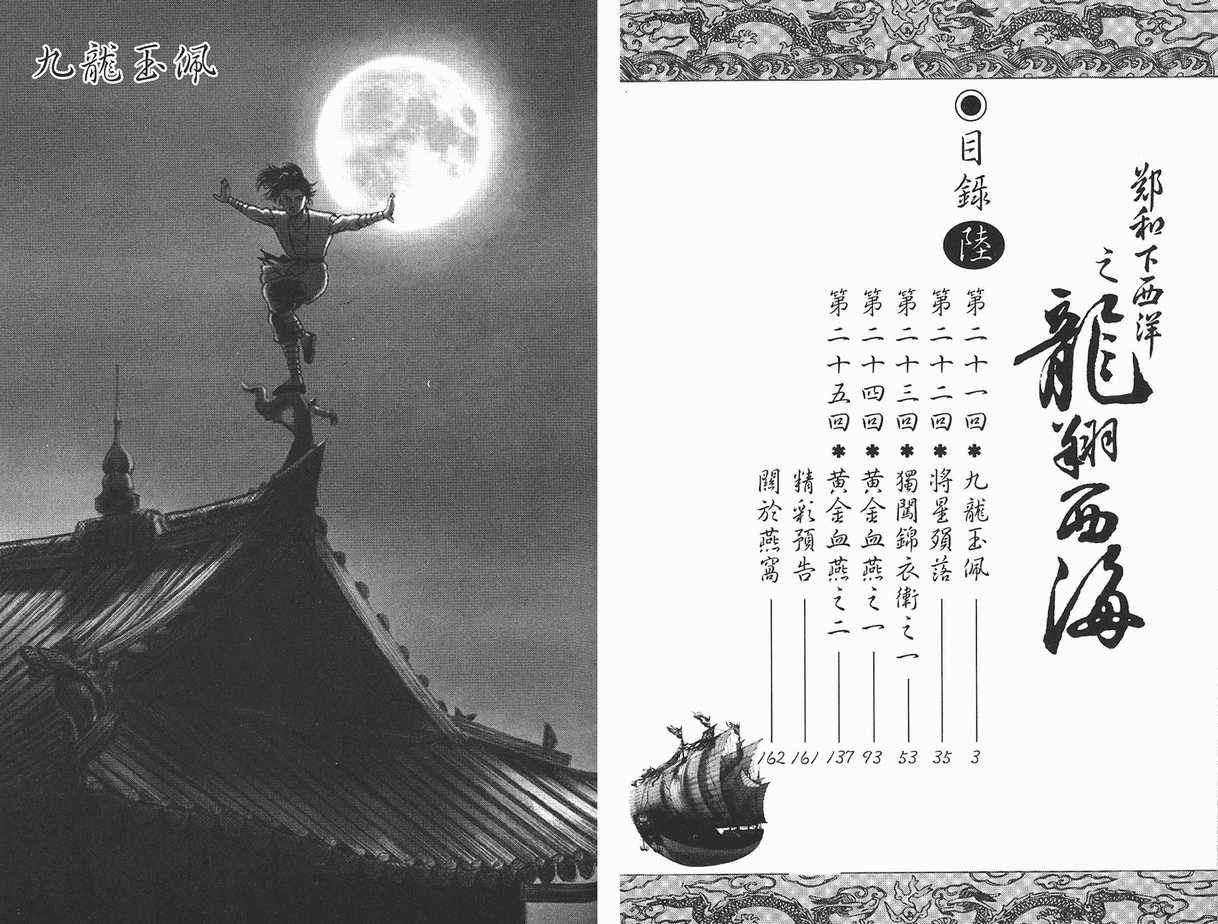 九龍玉佩
鄭和下西洋
之
龍翔西海
目錄
陸
第二十一回＊九龍玉佩 3
第二十二回＊將星殞落 35
第二十三回＊獨闖錦衣衛之一 53
第二十四回＊黃金血燕之一 93
第二十五回＊黃金血燕之二 137
精彩預告 161
關於燕窩 162